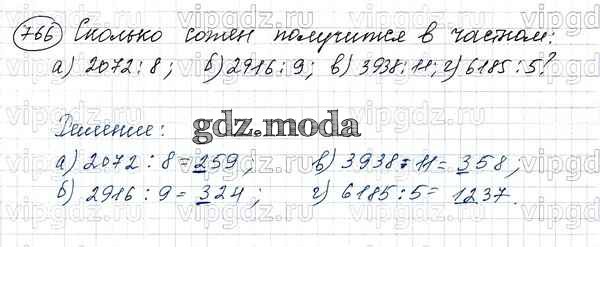 766 Сколько сотен получится в частном:
а) 2072:8; б) 2916:9; в) 3938:11; г) 6185:5?
Решение:
gdz.moda
а) 2072 : 8 = 259; в) 3938 : 11 = 358,
б) 2916 : 9 = 324; г) 6185 : 5 = 1237.
vipgdz.ru